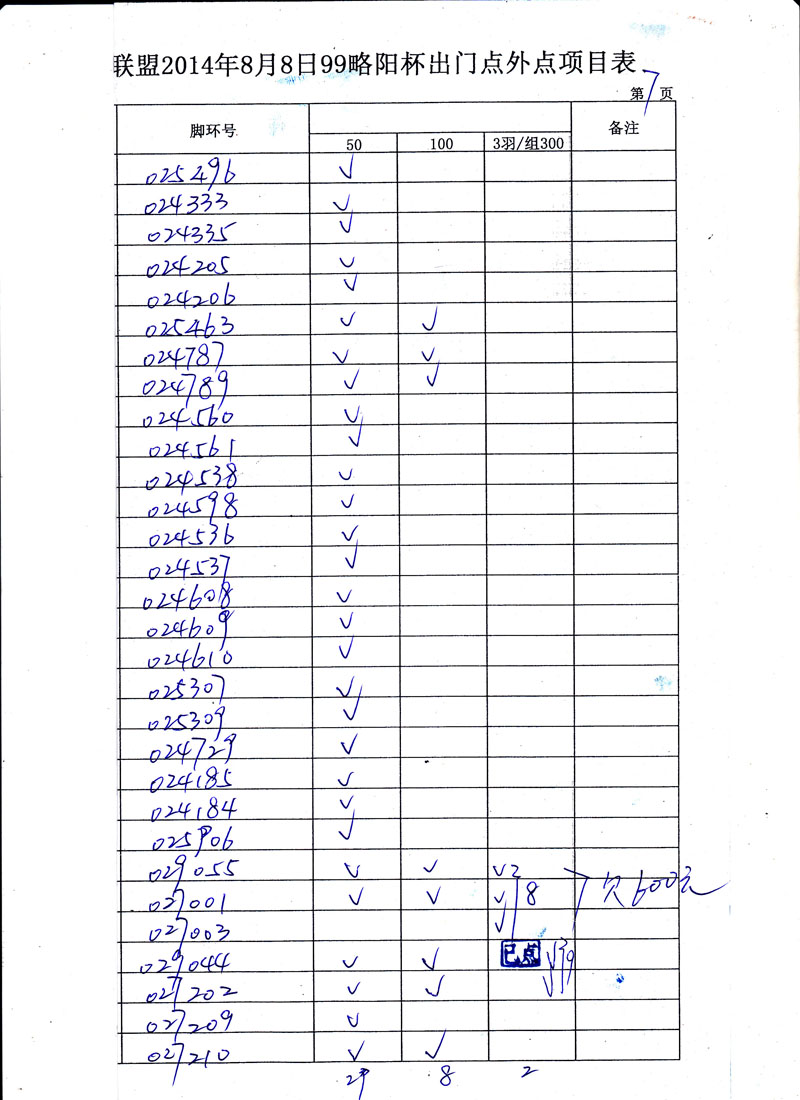 联盟2014年8月8日99略阳杯出门点外点项目表
第7页
脚环号 备注
50 100 3羽/组300
025496 ✓
024333 ✓
024335 ✓
024205 ✓
024206 ✓
025463 ✓ ✓
024787 ✓ ✓
024789 ✓ ✓
024560 ✓
024561 ✓
024538 ✓
024598 ✓
024536 ✓
024537 ✓
024608 ✓
024609 ✓
024610 ✓
025307 ✓
025309 ✓
024729 ✓
024185 ✓
024184 ✓
025906 ✓
029055 ✓ ✓ ✓
027001 ✓ ✓ ✓ 8 欠600元
027003 ✓
029044 ✓ ✓ 已点 ✓ 9
027202 ✓ ✓ ✓
027209 ✓
027210 ✓ ✓
29 8 2